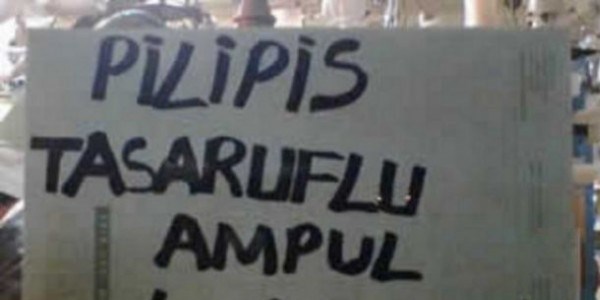 PİLİPİS
TASARUFLU
AMPUL